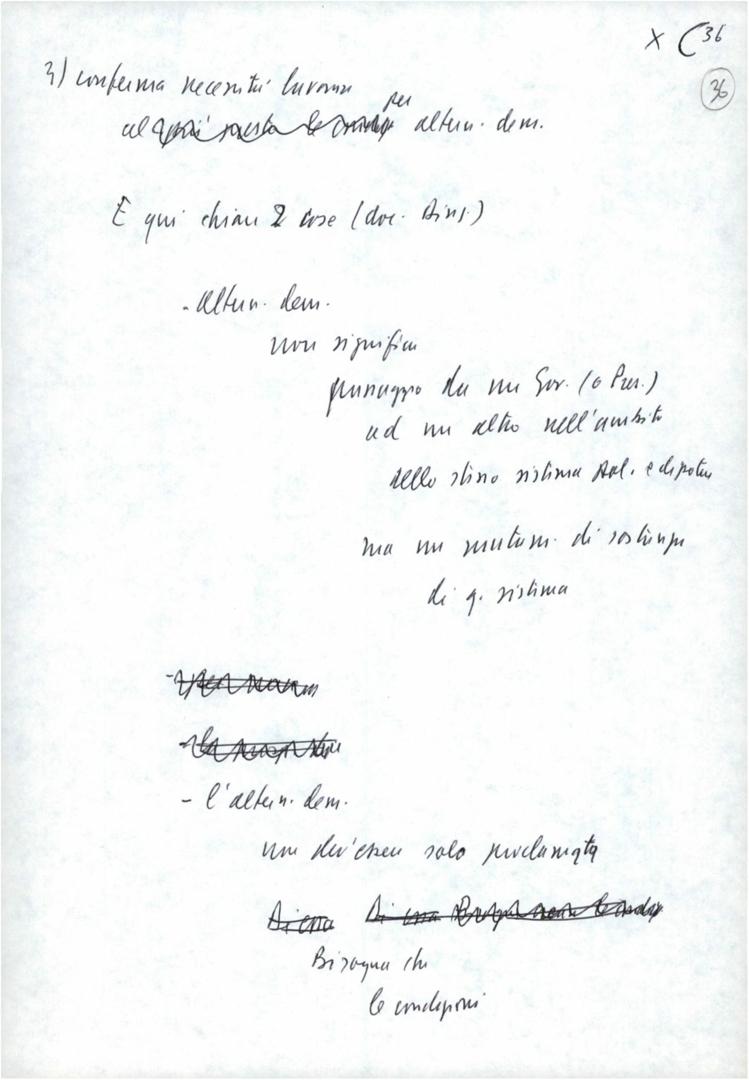 X (36
36
3) conferma necessità lavorare
per
al altern. dem.
E qui chiari 2 cose (doc. Dirz.)
- altern. dem.
non significa
passaggio da un Gov. (o Pres.)
ad un altro nell'ambito
dello stesso sistema pol. e di potere
ma un mutam. di sostanza
di q. sistema
- l'altern. dem.
non dev'essere solo proclamata
Bisogna che
le condizioni